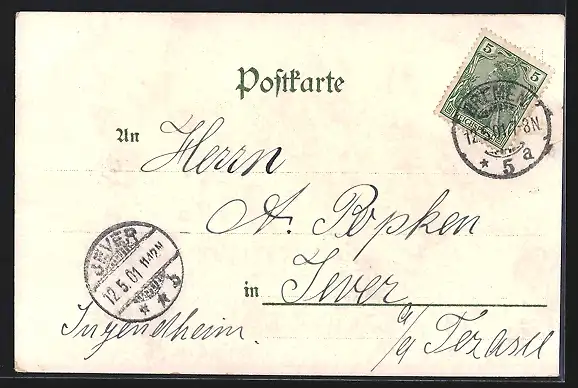 Postkarte
5 5
BREMEN
12.5.01.7-8N
* 5 a
An
Herrn
A. Popken
JEVER
12.5.01 11-12N
* * b
in Jever